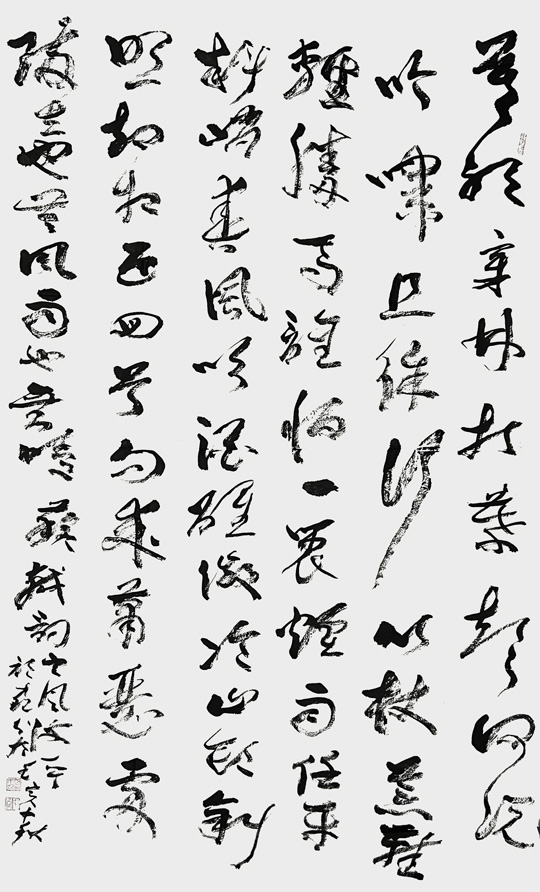 莫聽穿林打葉聲何妨
吟嘯且徐行竹杖芒鞋
輕勝馬誰怕一蓑煙雨任平
料峭春風吹酒醒微冷山頭斜
照却相迎回首向來蕭瑟處
歸去也無風雨也無晴蘇軾詞
定風波